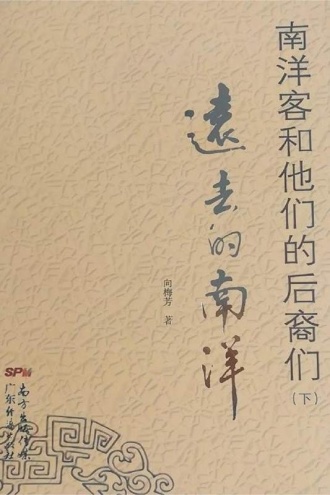 南洋客和他们的后裔们
(下)
遠去的南洋
向梅芳 著
SPM
南方出版传媒
广东经济出版社